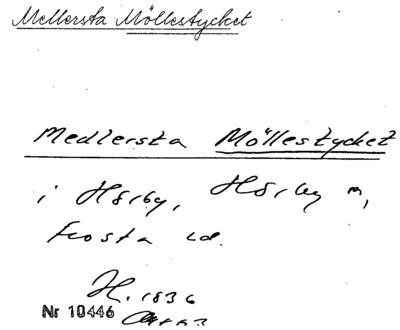 Mellersta Möllestycket
Medlersta Möllestycket
i Hörby, Hörby m,
Frosta hd.
H. 1836
Nr 10446